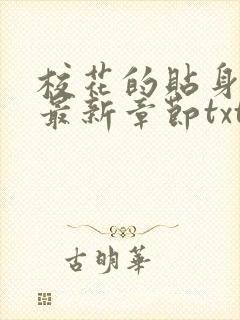 校花的贴身
最新章節txt
古明華